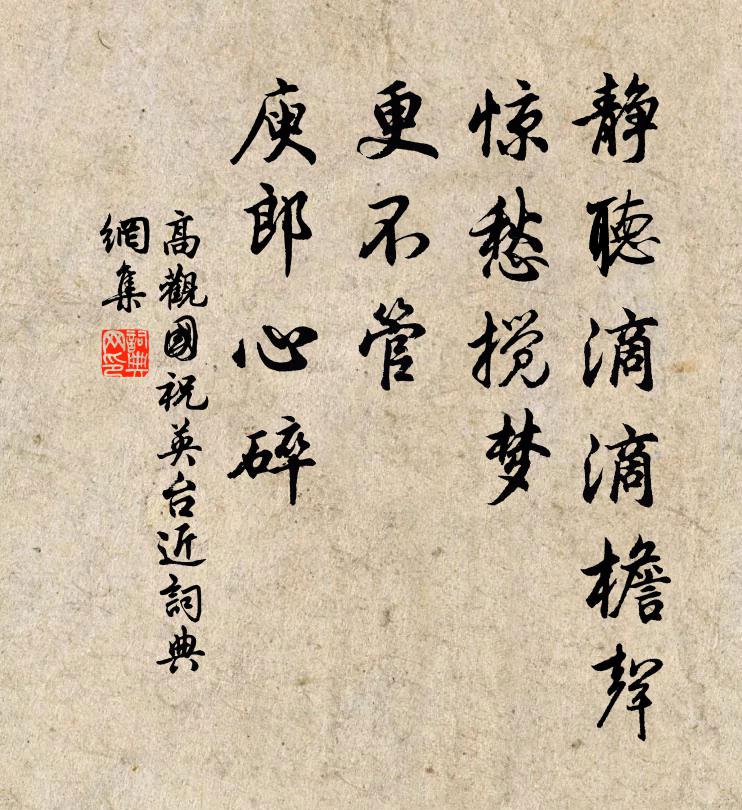 静聽滴滴檐聲
惊愁搅梦
更不管
庾郎心碎
高觀國祝英台近詞典
網集
詞典
网印